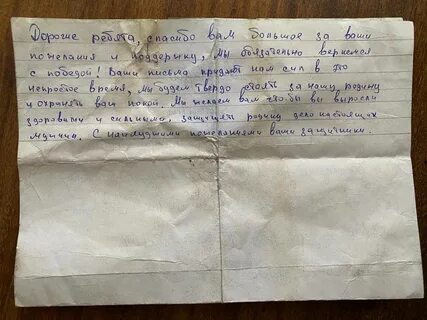 Дорогие ребята, спасибо вам большое за ваши
пожелания и поддержку, мы обязательно вернемся
с победой! Ваши письма придают нам сил в это
непростое время, мы будем твердо стоять за нашу родину
и охранять ваш покой. Мы желаем вам что бы вы выросли
здоровыми и сильными, защищать родину дело настоящих
мужчин. С наилучшими пожеланиями ваши защитники.